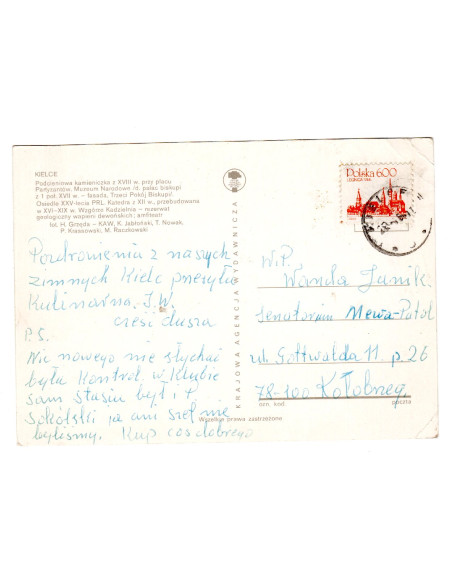 KIELCE
Podcieniowa kamieniczka z XVIII w. przy placu
Partyzantów, Muzeum Narodowe /d. pałac biskupi
z I poł. XVII w. – fasada, Trzeci Pokój Biskupi/.
Osiedle XXV-lecia PRL. Katedra z XII w., przebudowana
w XVI–XIX w. Wzgórze Kadzielnia – rezerwat
geologiczny wapieni dewońskich; amfiteatr
fot. H. Grzęda – KAW, K. Jabłoński, T. Nowak,
P. Krassowski, M. Raczkowski
Pozdrowienia z naszych
zimnych Kielc przesyła
Kulinarna J.W.
cześć dusza
P.S.
Nic nowego nie słychać
była Kontrol w Klubie
sam Stasiu był i P.
Sokólski ja ani szef nie
byliśmy. Kup coś dobrego
KRAJOWA AGENCJA WYDAWNICZA
Wszelkie prawa zastrzeżone
Polska 600
W.P.
Wanda Janik
Senatorium Mewa-Patol
ul. Gottwalda 11 p. 26
78-100 Kołobrzeg
nrn. kod.
poczta